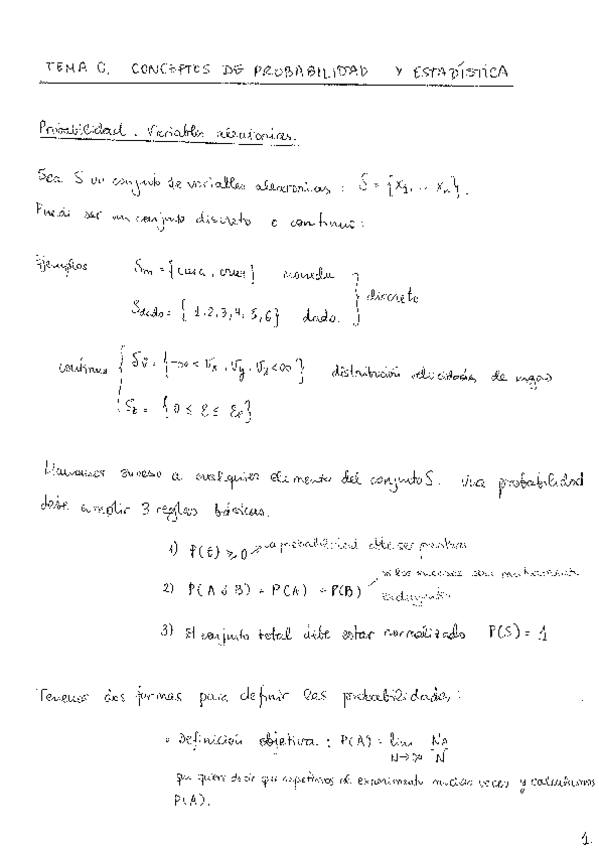 TEMA 0. CONCEPTOS DE PROBABILIDAD Y ESTADÍSTICA
Probabilidad. Variables aleatorias.
Sea S un conjunto de variables aleatorias : S = {x1, .. xn}.
Puede ser un conjunto discreto o continuo:
Ejemplos Sm = {cara, cruz} moneda
discreto
Sdado = {1,2,3,4,5,6} dado.
continuo Sv = {-∞ < vx, vy, vz < ∞} distribución velocidades de un gas
SE = {0 ≤ E ≤ }
Llamamos suceso a cualquier elemento del conjunto S. Una probabilidad
debe cumplir 3 reglas básicas.
1) P(E) ≥ 0 la probabilidad debe ser positiva
2) P(A ó B) = P(A) + P(B) si los sucesos son mutuamente
excluyentes
3) El conjunto total debe estar normalizado P(S) = 1
Tenemos dos formas para definir las probabilidades:
• Definición objetiva : P(A) = lim N→∞ NA/N
que quiere decir que repetimos el experimento muchas veces y calculamos
P(A).
1.